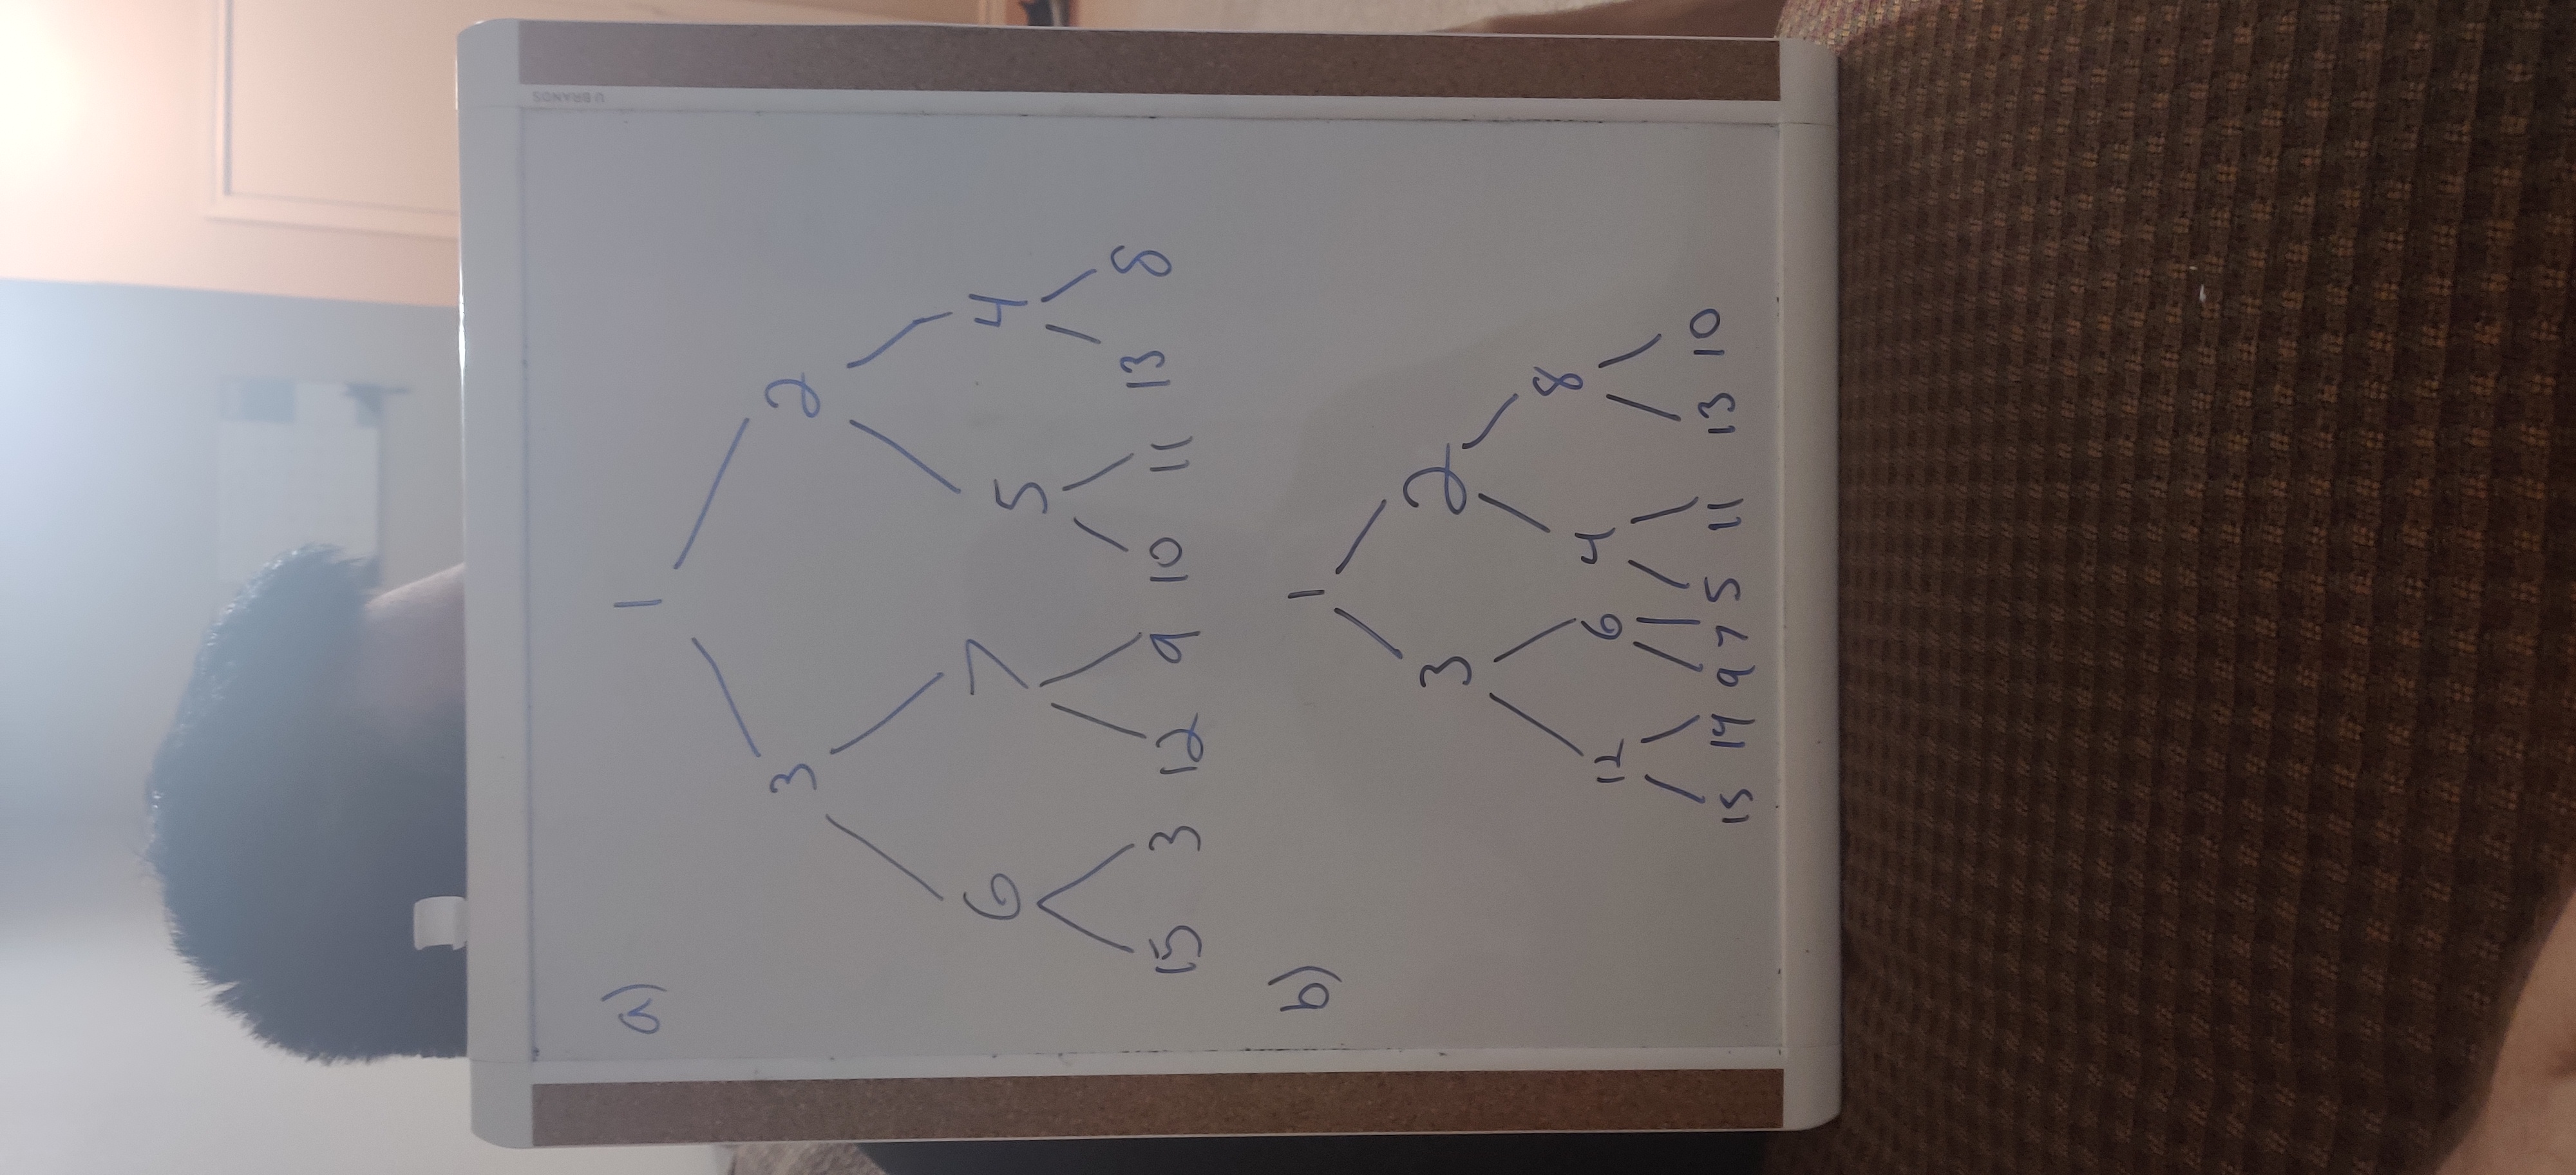 U BRANDS
a)
1
3 2
6 7 5 4
15 3 12 9 10 11 13 8
b)
1
3 2
12 6 4 8
15 14 9 7 5 11 13 10